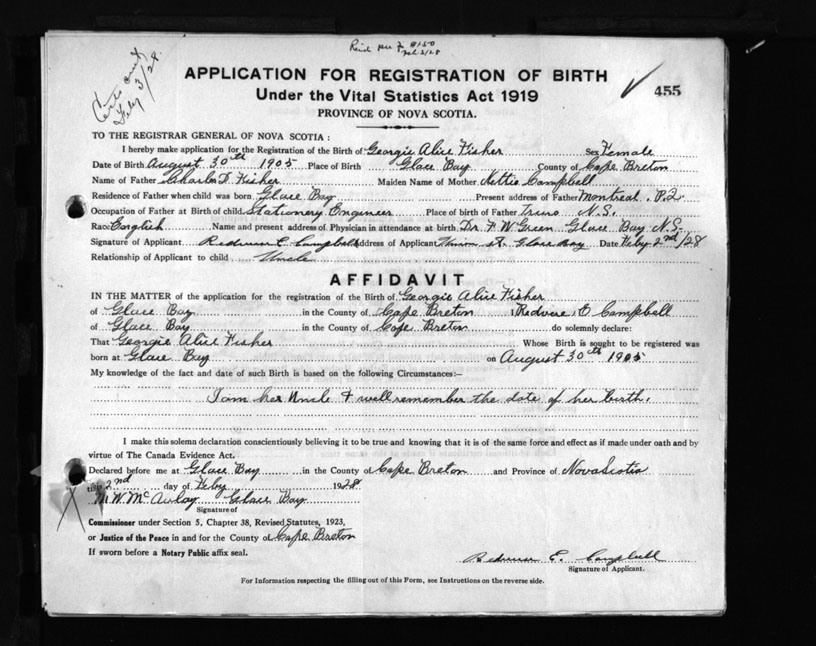 Feb 3/28
Feby 3/28.
APPLICATION FOR REGISTRATION OF BIRTH
Under the Vital Statistics Act 1919
455
PROVINCE OF NOVA SCOTIA.
TO THE REGISTRAR GENERAL OF NOVA SCOTIA :
I hereby make application for the Registration of the Birth of Georgie Alice Fisher Sex Female
Date of Birth August 30th 1905 Place of Birth Glace Bay County of Cape Breton
Name of Father Charles F. Fisher Maiden Name of Mother Nettie Campbell
Residence of Father when child was born Glace Bay Present address of Father Montreal. P.Q.
Occupation of Father at Birth of child Stationery Engineer Place of birth of Father Truro N.S.
Race English Name and present address of Physician in attendance at birth Dr. F. W Green Glace Bay N.S.
Signature of Applicant Redvere E. Campbell Address of Applicant St. Glace Bay Date Feby 2nd/28
Relationship of Applicant to child Uncle
AFFIDAVIT
IN THE MATTER of the application for the registration of the Birth of Georgie Alice Fisher
of Glace Bay in the County of Cape Breton I Redvere E Campbell
of Glace Bay in the County of Cape Breton do solemnly declare:
That Georgie Alice Fisher Whose Birth is sought to be registered was
born at Glace Bay on August 30th 1905
My knowledge of the fact and date of such Birth is based on the following Circumstances:—
I am her Uncle & well remember the date of her birth.
I make this solemn declaration conscientiously believing it to be true and knowing that it is of the same force and effect as if made under oath and by
virtue of The Canada Evidence Act.
Declared before me at Glace Bay in the County of Cape Breton and Province of Nova Scotia
this 2nd day of Feby 1928
M. W. McAulay Glace Bay
Signature of
Commissioner under Section 5, Chapter 38, Revised Statutes, 1923,
or Justice of the Peace in and for the County of Cape Breton
If sworn before a Notary Public affix seal.
Redvere E. Campbell
Signature of Applicant.
For Information respecting the filling out of this Form, see Instructions on the reverse side.